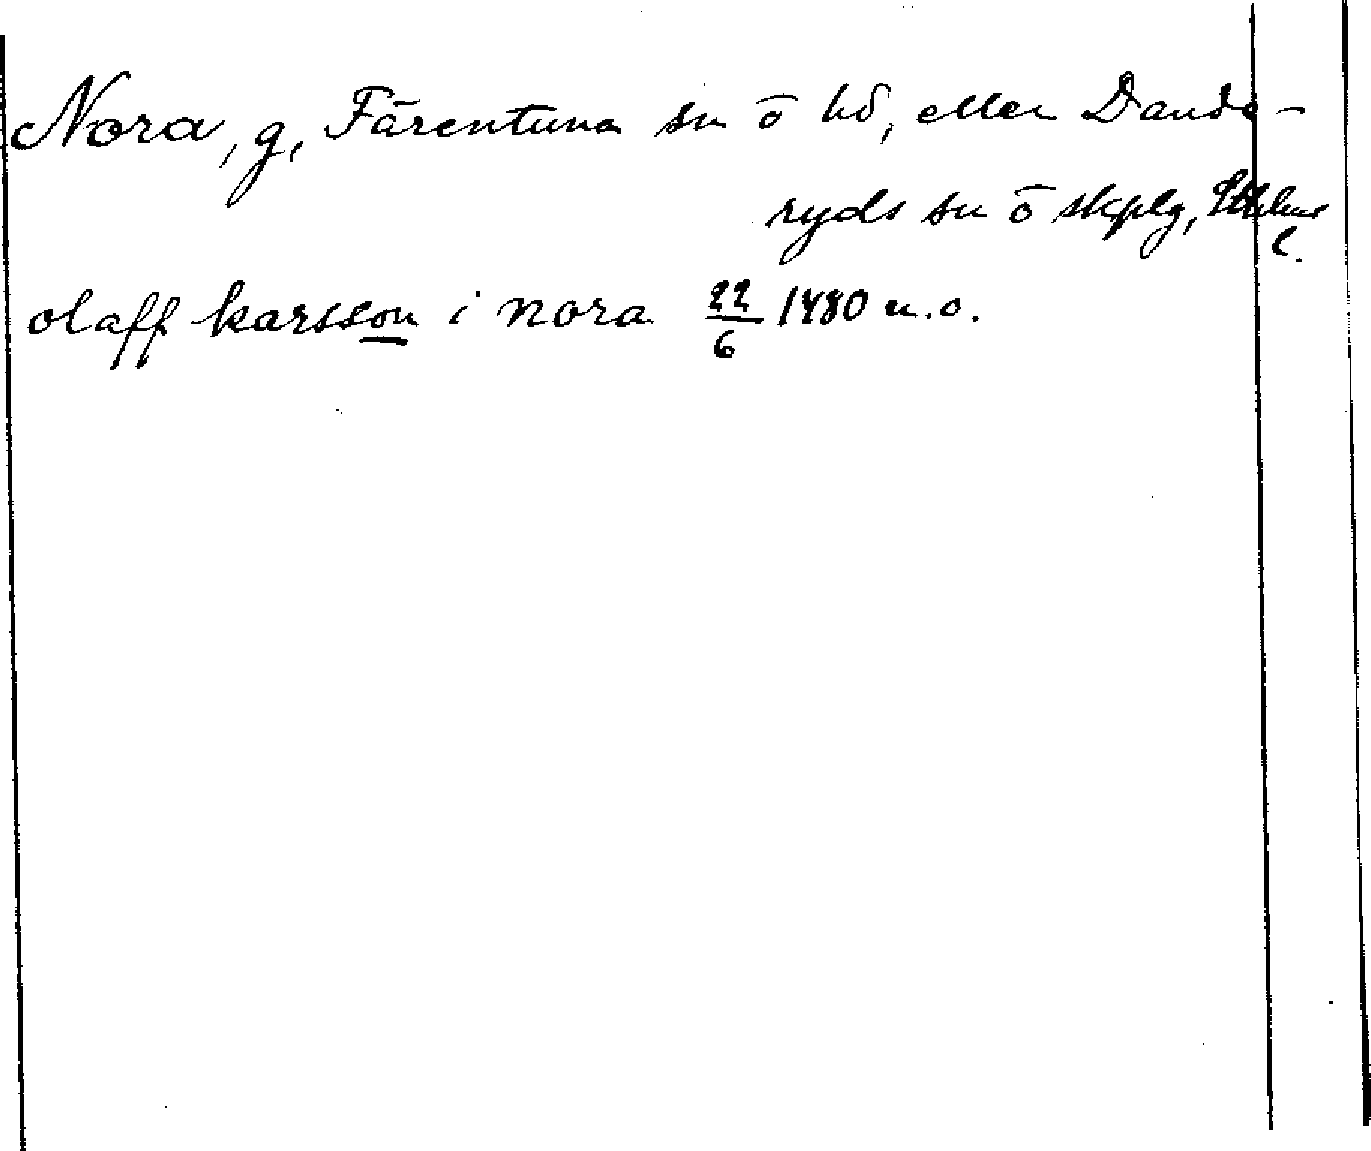 Nora, g, Färentuna sn o hd, eller Dande-
ryds sn o skplg, Sthlms
l.
olaff karsson i nora 22/6 1480 n.o.